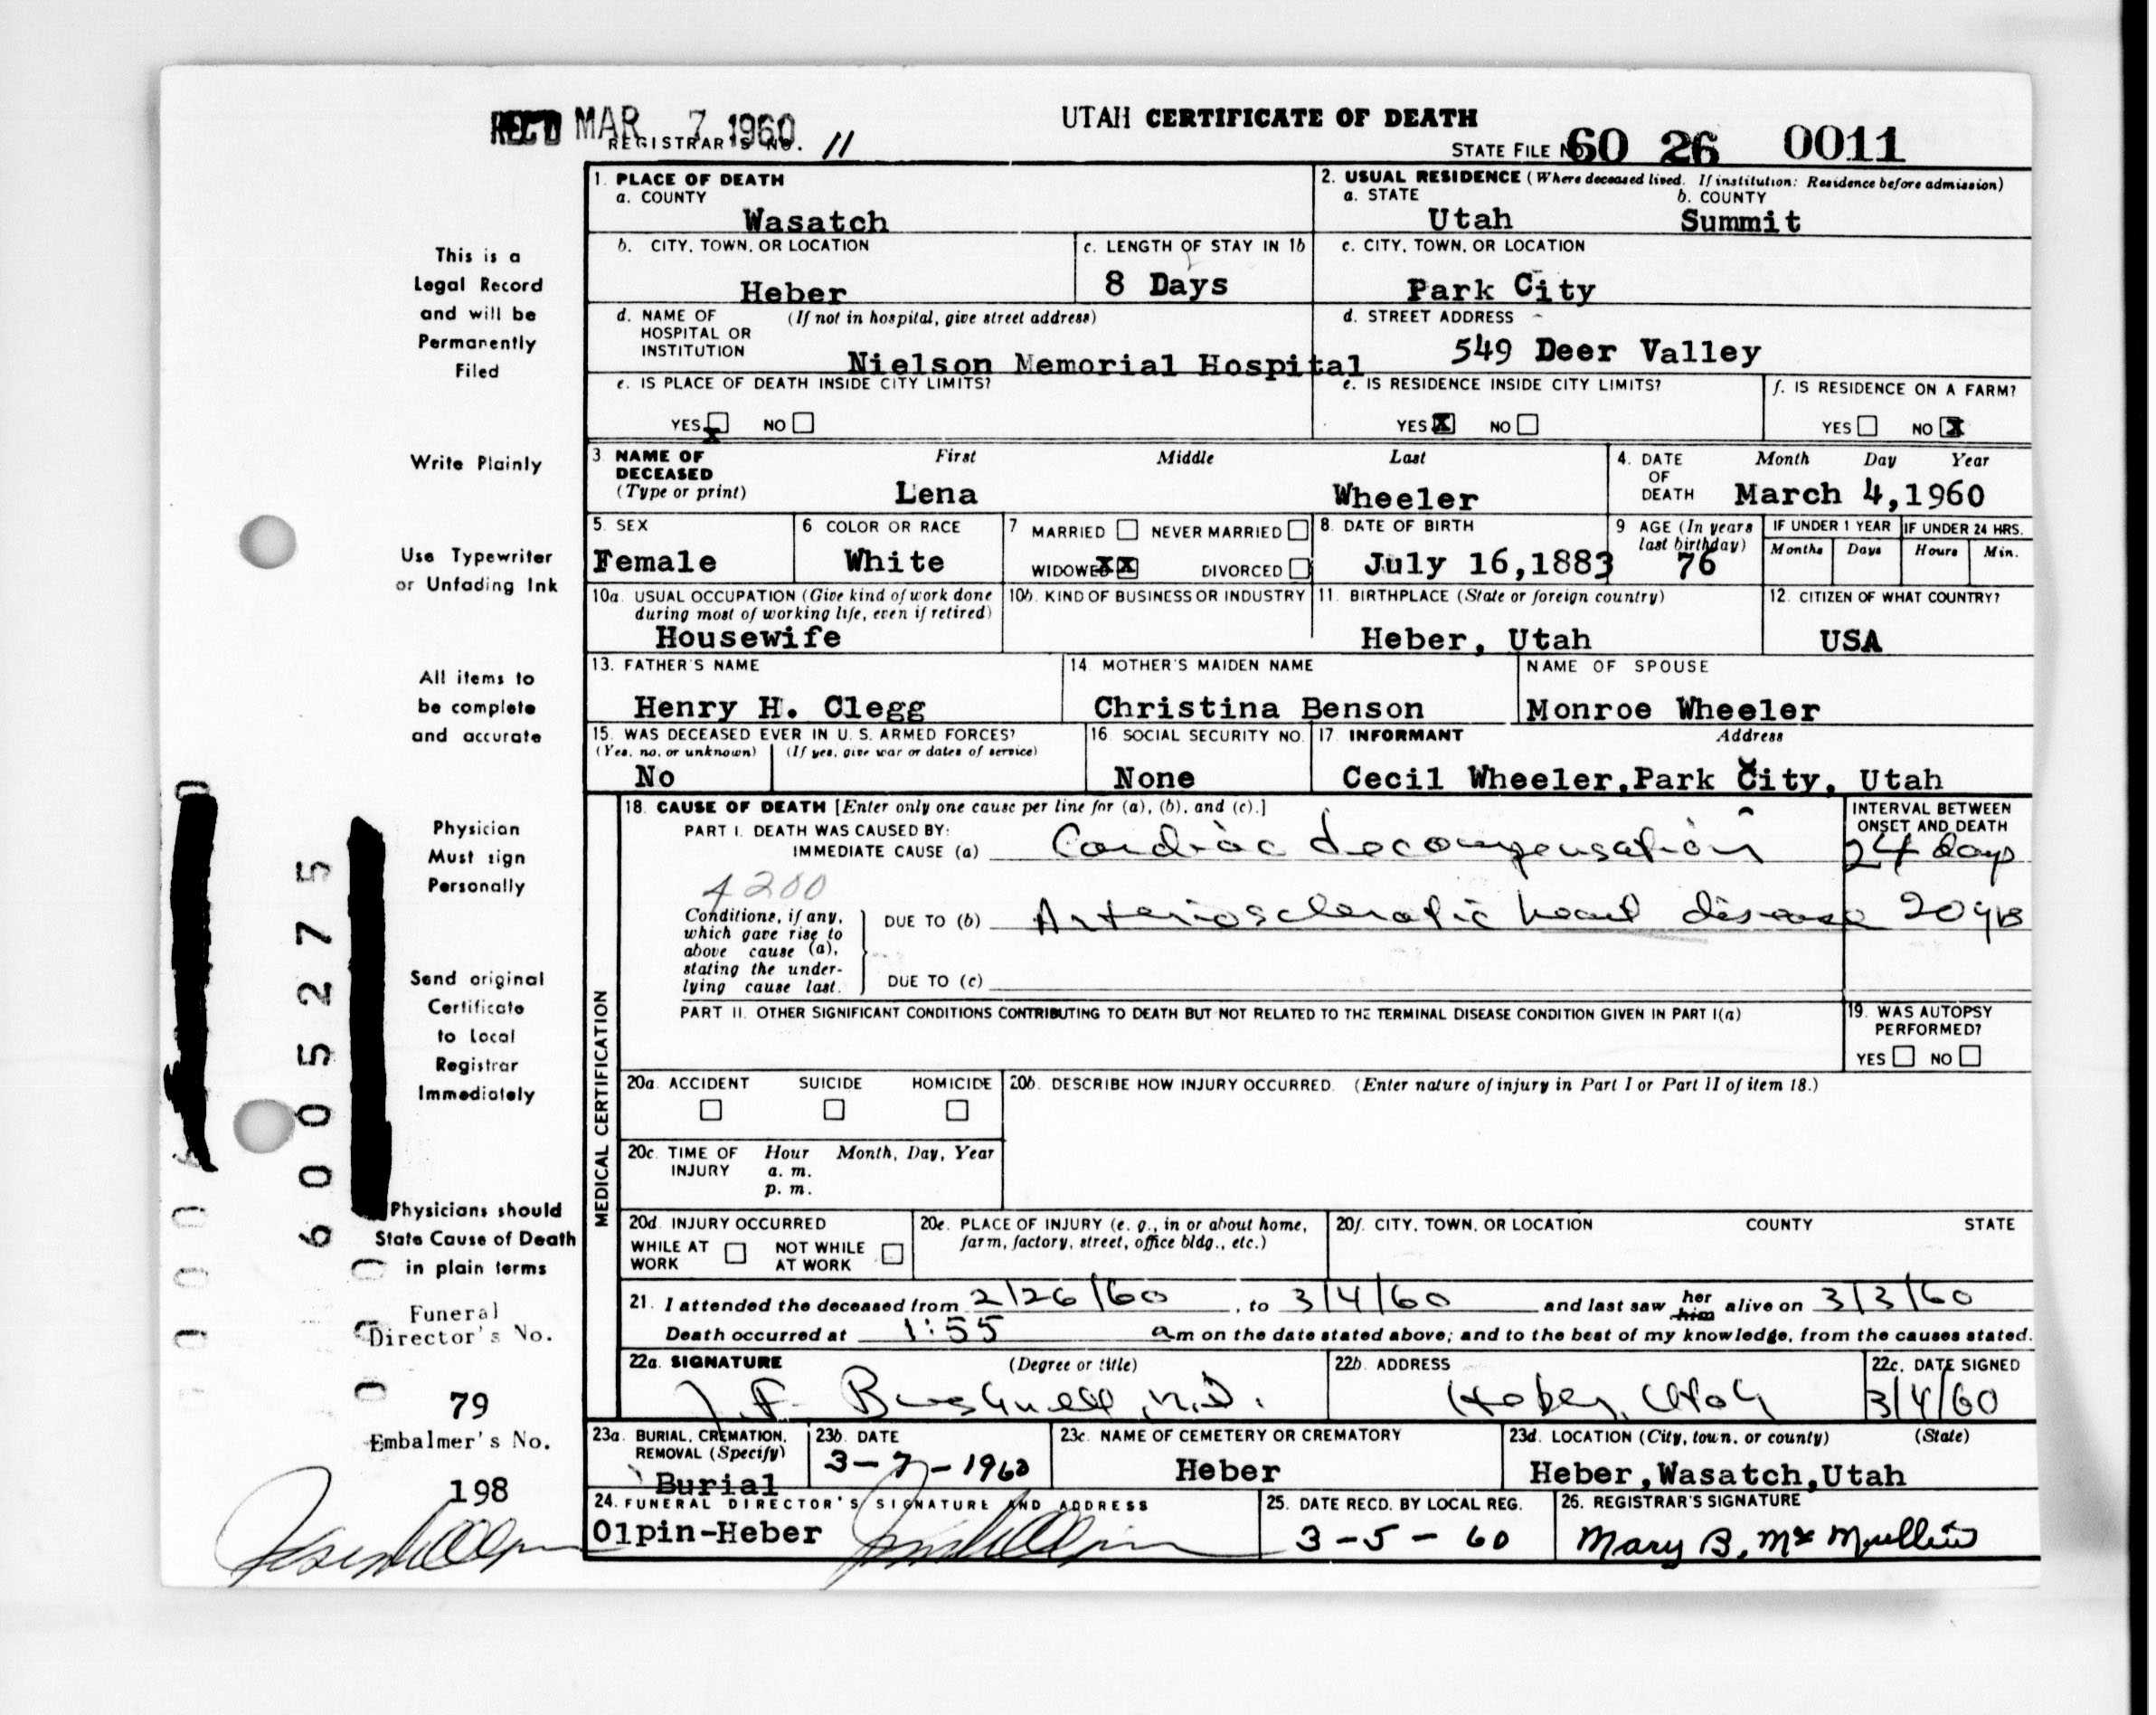 REC'D MAR 7 1960
REGISTRAR'S NO. 11
UTAH CERTIFICATE OF DEATH
STATE FILE NO. 60 26 0011
This is a
Legal Record
and will be
Permanently
Filed
Write Plainly
Use Typewriter
or Unfading Ink
All items to
be complete
and accurate
Physician
Must sign
Personally
Send original
Certificate
to Local
Registrar
Immediately
Physicians should
State Cause of Death
in plain terms
Funeral
Director's No.
79
Embalmer's No.
198
6005275
1. PLACE OF DEATH
a. COUNTY
Wasatch
2. USUAL RESIDENCE (Where deceased lived. If institution: Residence before admission)
a. STATE b. COUNTY
Utah Summit
b. CITY, TOWN, OR LOCATION
Heber
c. LENGTH OF STAY IN 1b
8 Days
c. CITY, TOWN, OR LOCATION
Park City
d. NAME OF (If not in hospital, give street address)
HOSPITAL OR
INSTITUTION
Nielson Memorial Hospital
d. STREET ADDRESS
549 Deer Valley
e. IS PLACE OF DEATH INSIDE CITY LIMITS?
YES X NO
e. IS RESIDENCE INSIDE CITY LIMITS?
YES X NO
f. IS RESIDENCE ON A FARM?
YES NO X
3. NAME OF First Middle Last
DECEASED
(Type or print)
Lena Wheeler
4. DATE Month Day Year
OF
DEATH March 4,1960
5. SEX
Female
6. COLOR OR RACE
White
7 MARRIED NEVER MARRIED
WIDOWED XX DIVORCED
8. DATE OF BIRTH
July 16,1883
9 AGE (In years
last birthday)
76
IF UNDER 1 YEAR IF UNDER 24 HRS.
Months Days Hours Min.
10a. USUAL OCCUPATION (Give kind of work done
during most of working life, even if retired)
Housewife
10b. KIND OF BUSINESS OR INDUSTRY
11. BIRTHPLACE (State or foreign country)
Heber, Utah
12. CITIZEN OF WHAT COUNTRY?
USA
13. FATHER'S NAME
Henry H. Clegg
14. MOTHER'S MAIDEN NAME
Christina Benson
NAME OF SPOUSE
Monroe Wheeler
15. WAS DECEASED EVER IN U. S. ARMED FORCES?
(Yes, no, or unknown) (If yes, give war or dates of service)
No
16. SOCIAL SECURITY NO.
None
17. INFORMANT Address
Cecil Wheeler,Park City, Utah
MEDICAL CERTIFICATION
18. CAUSE OF DEATH [Enter only one cause per line for (a), (b), and (c).]
INTERVAL BETWEEN
ONSET AND DEATH
PART I. DEATH WAS CAUSED BY:
IMMEDIATE CAUSE (a) Cardiac decompensation 24 days
4200
Conditions, if any,
which gave rise to
above cause (a),
stating the under-
lying cause last.
DUE TO (b) Arteriosclerotic heart disease 20 yrs
DUE TO (c)
PART II. OTHER SIGNIFICANT CONDITIONS CONTRIBUTING TO DEATH BUT NOT RELATED TO THE TERMINAL DISEASE CONDITION GIVEN IN PART I(a)
19. WAS AUTOPSY
PERFORMED?
YES NO
20a. ACCIDENT SUICIDE HOMICIDE
20b. DESCRIBE HOW INJURY OCCURRED. (Enter nature of injury in Part I or Part II of item 18.)
20c. TIME OF Hour Month, Day, Year
INJURY a. m.
p. m.
20d. INJURY OCCURRED
WHILE AT NOT WHILE
WORK AT WORK
20e. PLACE OF INJURY (e. g., in or about home,
farm, factory, street, office bldg., etc.)
20f. CITY, TOWN, OR LOCATION COUNTY STATE
21. I attended the deceased from 2/26/60, to 3/4/60 and last saw her him alive on 3/3/60
Death occurred at 1:55 am on the date stated above; and to the best of my knowledge, from the causes stated.
22a. SIGNATURE (Degree or title)
22b. ADDRESS
Heber, Utah
22c. DATE SIGNED
3/4/60
23a. BURIAL, CREMATION,
REMOVAL (Specify)
Burial
23b. DATE
3-7-1960
23c. NAME OF CEMETERY OR CREMATORY
Heber
23d. LOCATION (City, town, or county) (State)
Heber,Wasatch,Utah
24. FUNERAL DIRECTOR'S SIGNATURE AND ADDRESS
Olpin-Heber
25. DATE RECD. BY LOCAL REG.
3-5-60
26. REGISTRAR'S SIGNATURE
Mary B. McMullin